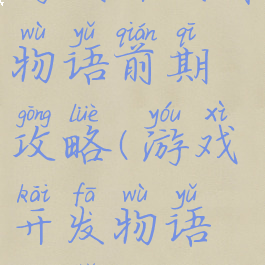 wù yǔ qián qī
物语前期
gōng lüè yóu xì
攻略(游戏
kāi fā wù yǔ
开发物语